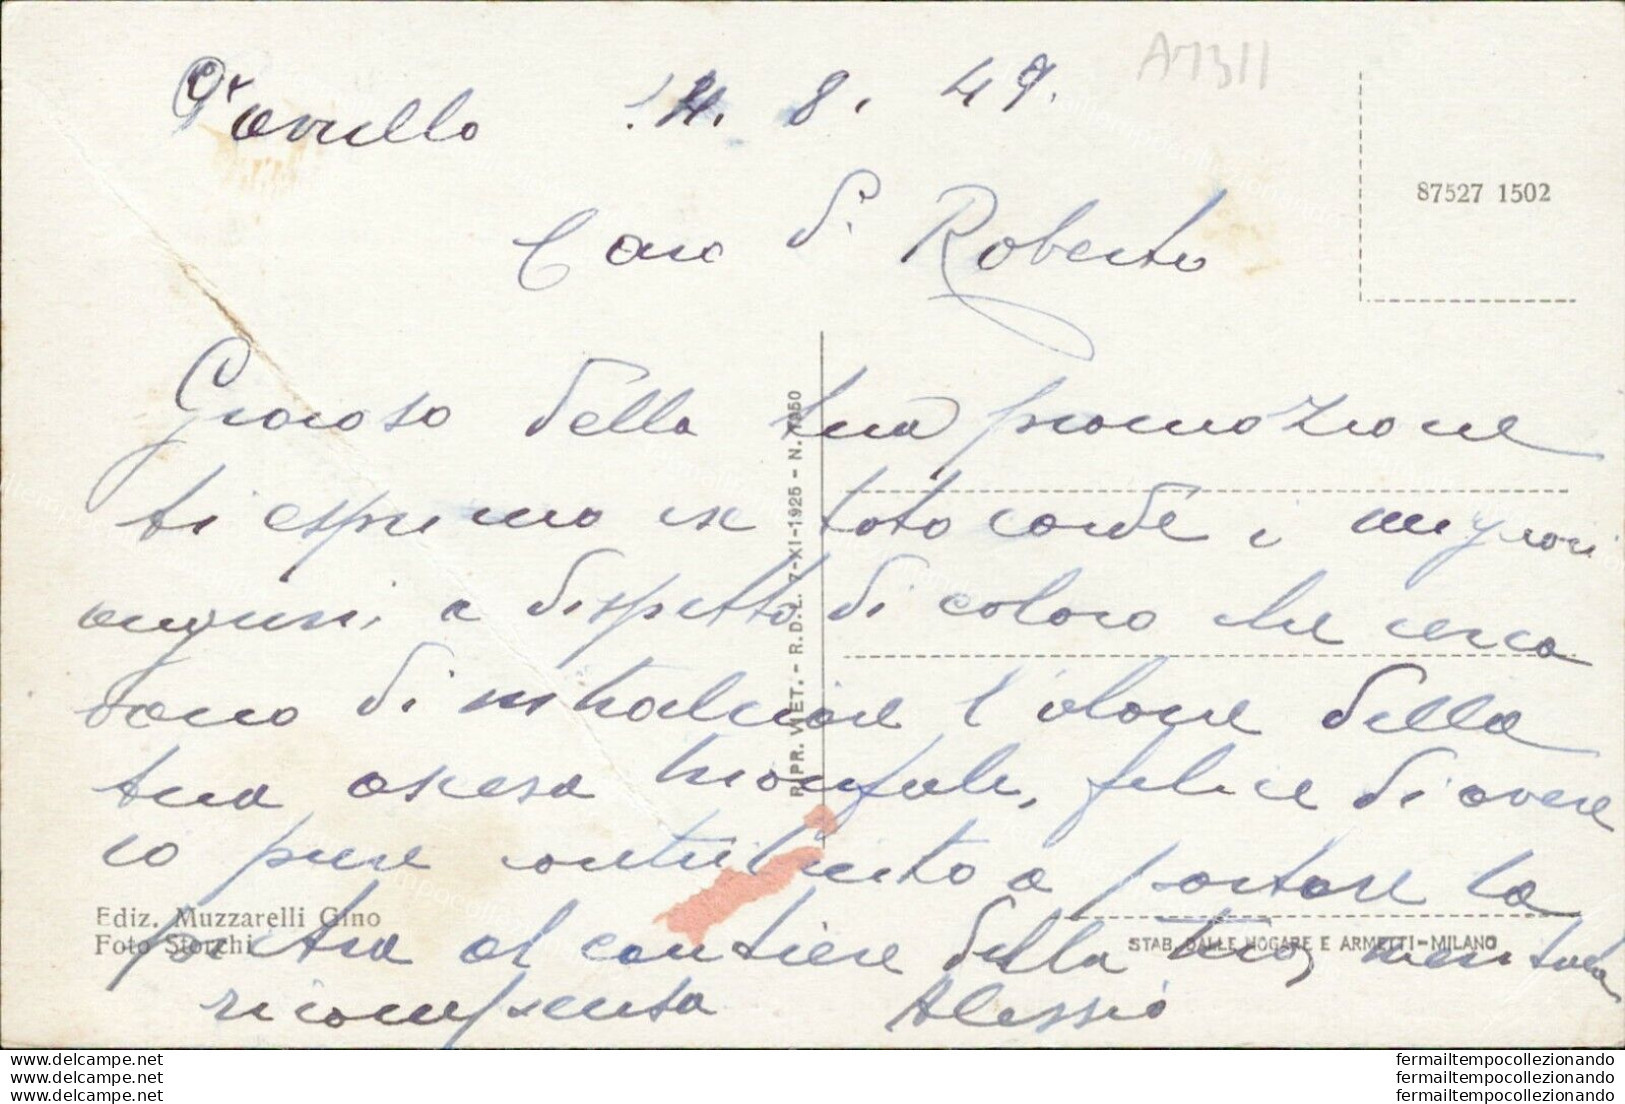 Pavullo 14. 8. 49.
A7311
87527 1502
Caro S. Roberto
Gioioso della tua promozione
ti esprimo ex toto corde i migliori
auguri, a dispetto di coloro che cerca
vano di intralciare l'alone della
tua ascesa trionfale, felice di avere
io pure contribuito a portare la
pietra al cantiere della tua meritata
ricompensa Alessio
RIPR. VIET. - R.D.L. 7-XI-1925 - N. 1950
Ediz. Muzzarelli Gino
Foto Storchi
STAB. DALLE NOGARE E ARMETTI-MILANO
fermailtempocollezionando
fermailtempocollezionando
fermailtempocollezionando
www.delcampe.net
www.delcampe.net
www.delcampe.net